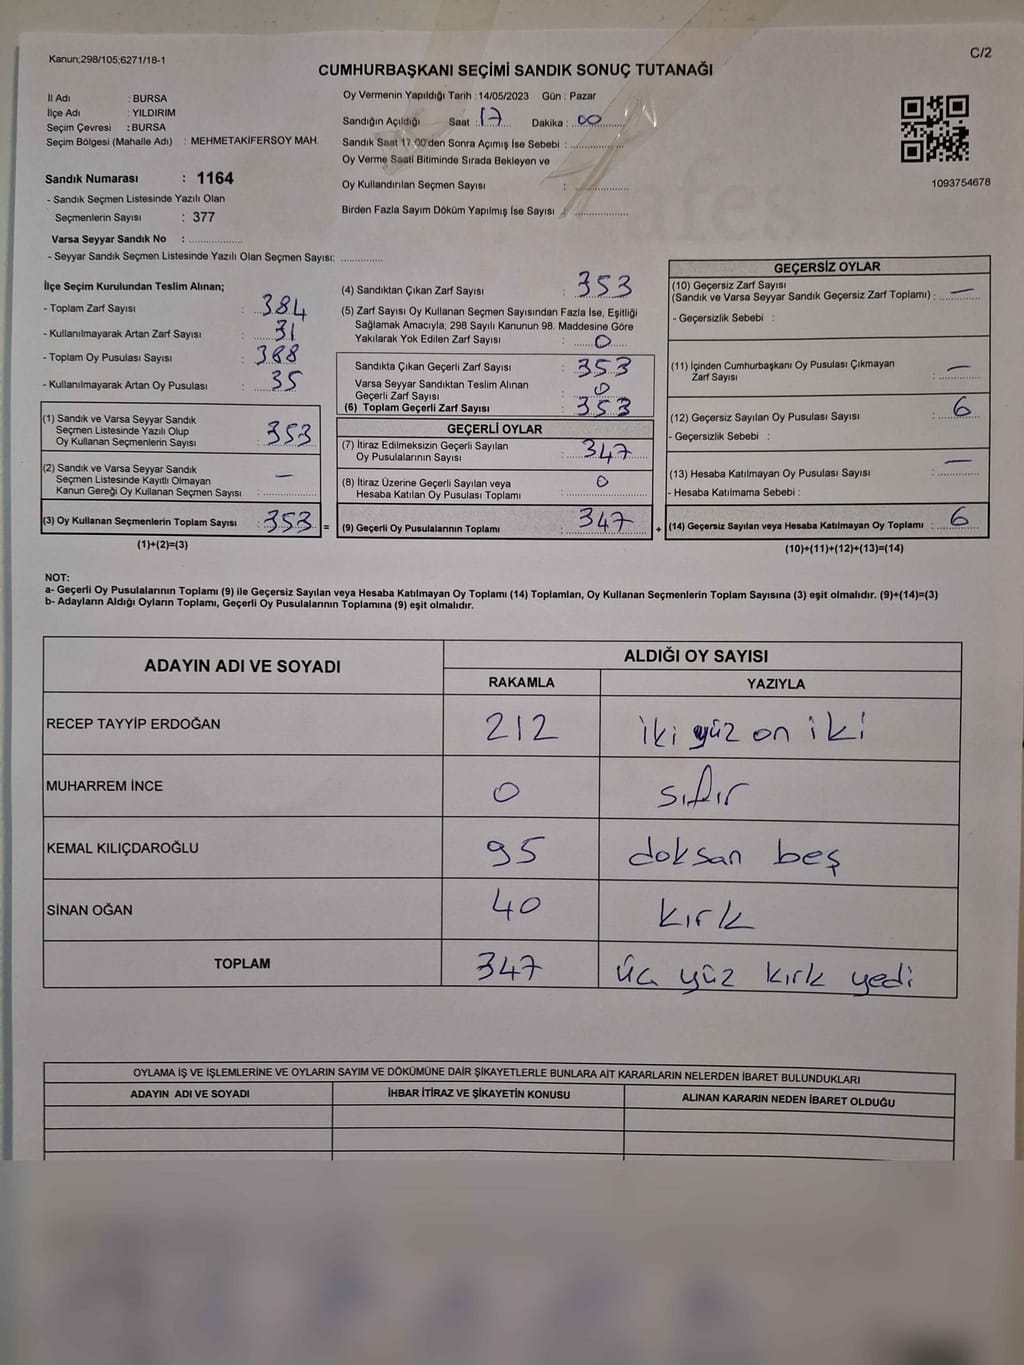 Kanun;298/105,6271/18-1
C/2
CUMHURBAŞKANI SEÇİMİ SANDIK SONUÇ TUTANAĞI
İl Adı : BURSA
İlçe Adı : YILDIRIM
Seçim Çevresi : BURSA
Seçim Bölgesi (Mahalle Adı) : MEHMETAKİFERSOY MAH.
Oy Vermenin Yapıldığı Tarih : 14/05/2023 Gün : Pazar
Sandığın Açıldığı Saat : 17 Dakika : 00
Sandık Saat 17:00'den Sonra Açımış İse Sebebi :
Oy Verme Saati Bitiminde Sırada Bekleyen ve
Oy Kullandırılan Seçmen Sayısı :
Birden Fazla Sayım Döküm Yapılmış İse Sayısı :
1093754678
Sandık Numarası : 1164
- Sandık Seçmen Listesinde Yazılı Olan
Seçmenlerin Sayısı : 377
Varsa Seyyar Sandık No :
- Seyyar Sandık Seçmen Listesinde Yazılı Olan Seçmen Sayısı:
İlçe Seçim Kurulundan Teslim Alınan;
- Toplam Zarf Sayısı : 384
- Kullanılmayarak Artan Zarf Sayısı : 31
- Toplam Oy Pusulası Sayısı : 388
- Kullanılmayarak Artan Oy Pusulası : 35
(1) Sandık ve Varsa Seyyar Sandık
Seçmen Listesinde Yazılı Olup
Oy Kullanan Seçmenlerin Sayısı : 353
(2) Sandık ve Varsa Seyyar Sandık
Seçmen Listesinde Kayıtlı Olmayan
Kanun Gereği Oy Kullanan Seçmen Sayısı : —
(3) Oy Kullanan Seçmenlerin Toplam Sayısı : 353 =
(1)+(2)=(3)
(4) Sandıktan Çıkan Zarf Sayısı : 353
(5) Zarf Sayısı Oy Kullanan Seçmen Sayısından Fazla İse, Eşitliği
Sağlamak Amacıyla; 298 Sayılı Kanunun 98. Maddesine Göre
Yakılarak Yok Edilen Zarf Sayısı : 0
Sandıkta Çıkan Geçerli Zarf Sayısı : 353
Varsa Seyyar Sandıktan Teslim Alınan
Geçerli Zarf Sayısı : 0
(6) Toplam Geçerli Zarf Sayısı : 353
GEÇERLİ OYLAR
(7) İtiraz Edilmeksizin Geçerli Sayılan
Oy Pusulalarının Sayısı : 347
(8) İtiraz Üzerine Geçerli Sayılan veya
Hesaba Katılan Oy Pusulası Toplamı : 0
(9) Geçerli Oy Pusulalarının Toplamı : 347 +
GEÇERSİZ OYLAR
(10) Geçersiz Zarf Sayısı
(Sandık ve Varsa Seyyar Sandık Geçersiz Zarf Toplamı) : —
- Geçersizlik Sebebi :
(11) İçinden Cumhurbaşkanı Oy Pusulası Çıkmayan
Zarf Sayısı : —
(12) Geçersiz Sayılan Oy Pusulası Sayısı : 6
- Geçersizlik Sebebi :
(13) Hesaba Katılmayan Oy Pusulası Sayısı : —
- Hesaba Katılmama Sebebi :
(14) Geçersiz Sayılan veya Hesaba Katılmayan Oy Toplamı : 6
(10)+(11)+(12)+(13)=(14)
NOT:
a- Geçerli Oy Pusulalarının Toplamı (9) ile Geçersiz Sayılan veya Hesaba Katılmayan Oy Toplamı (14) Toplamları, Oy Kullanan Seçmenlerin Toplam Sayısına (3) eşit olmalıdır. (9)+(14)=(3)
b- Adayların Aldığı Oyların Toplamı, Geçerli Oy Pusulalarının Toplamına (9) eşit olmalıdır.
ADAYIN ADI VE SOYADI
ALDIĞI OY SAYISI
RAKAMLA YAZIYLA
RECEP TAYYİP ERDOĞAN 212 iki yüz on iki
MUHARREM İNCE 0 sıfır
KEMAL KILIÇDAROĞLU 95 doksan beş
SİNAN OĞAN 40 kırk
TOPLAM 347 üç yüz kırk yedi
OYLAMA İŞ VE İŞLEMLERİNE VE OYLARIN SAYIM VE DÖKÜMÜNE DAİR ŞİKAYETLERLE BUNLARA AİT KARARLARIN NELERDEN İBARET BULUNDUKLARI
ADAYIN ADI VE SOYADI İHBAR İTİRAZ VE ŞİKAYETİN KONUSU ALINAN KARARIN NEDEN İBARET OLDUĞU